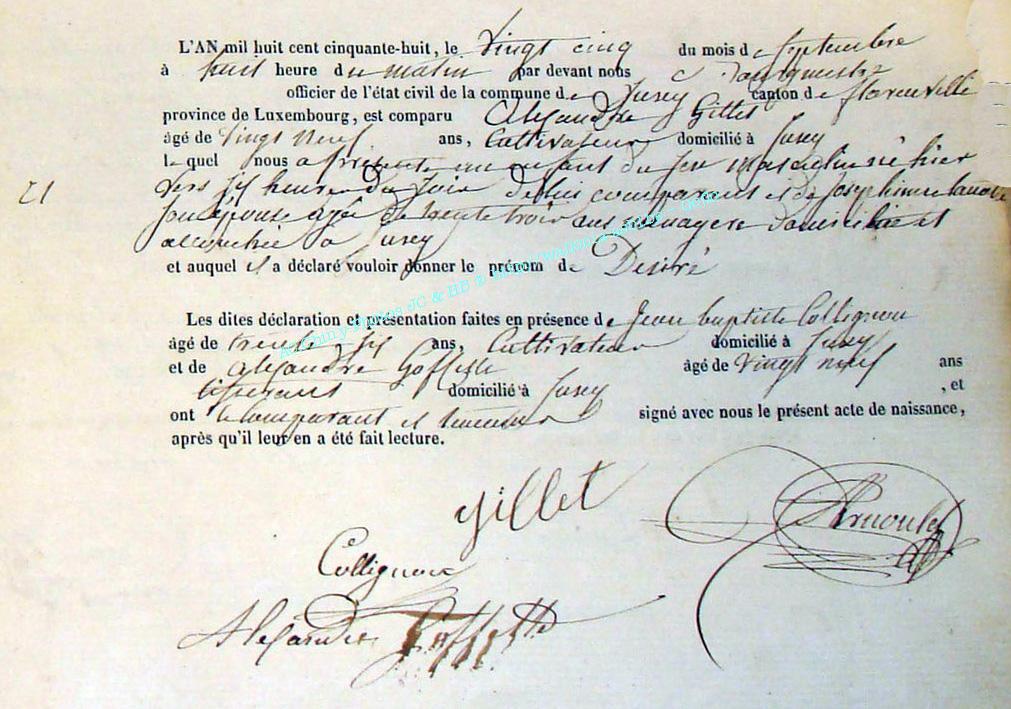 L'AN mil huit cent cinquante-huit, le vingt cinq du mois de Septembre
à huit heure du matin par devant nous
officier de l'état civil de la commune de Jusey canton de florenville
province de Luxembourg, est comparu Alexandre Gillet
âgé de vingt neuf ans, Cultivateur domicilié à Jusey
lequel nous a présenté un enfant du sex masculin né hier
21 vers six heures du soir de lui comparant et de Josephine
son épouse agée de trente trois ans menagere domiciliée et
accouchée à Jusey
et auquel il a déclaré vouloir donner le prénom de Desiré
Les dites déclaration et présentation faites en présence de Jean baptiste Collignon
âgé de trente six ans, Cultivateur domicilié à Jusey
et de alexandre Goffette âgé de vingt neuf ans
domicilié à Jusey , et
ont le comparant et temoins signé avec nous le présent acte de naissance,
après qu'il leur en a été fait lecture.
gillet
Collignon
Alexandre Goffette